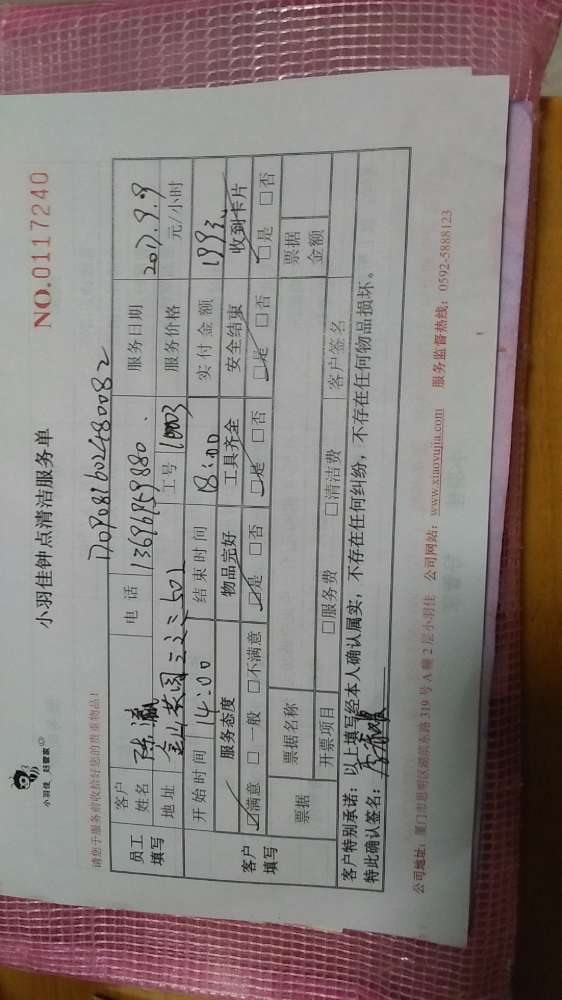 小羽佳 好管家
小羽佳钟点清洁服务单
NO.0117240
请您于服务前收拾好您的贵重物品!
1709081602480082
员工填写 客户姓名 陈瀛 电话 13696959880. 服务日期 2017.9.9
地址 金山英园 501 工号 10003 服务价格 元/小时
开始时间 14:00 结束时间 18:00 实付金额 199元
客户填写 服务态度 物品完好 工具齐全 安全结束 收到卡片
☑满意 □一般 □不满意 ☑是 □否 ☑是 □否 ☑是 □否 ☑是 □否
票据 票据名称 票据金额
开票项目 □服务费 □清洁费 客户签名
客户特别承诺:以上填写经本人确认属实,不存在任何纠纷,不存在任何物品损坏。
特此确认签名:
公司地址:厦门市思明区湖滨东路319号A幢2层小羽佳 公司网站:www.xiaoyujia.com 服务监督热线:0592-5888123